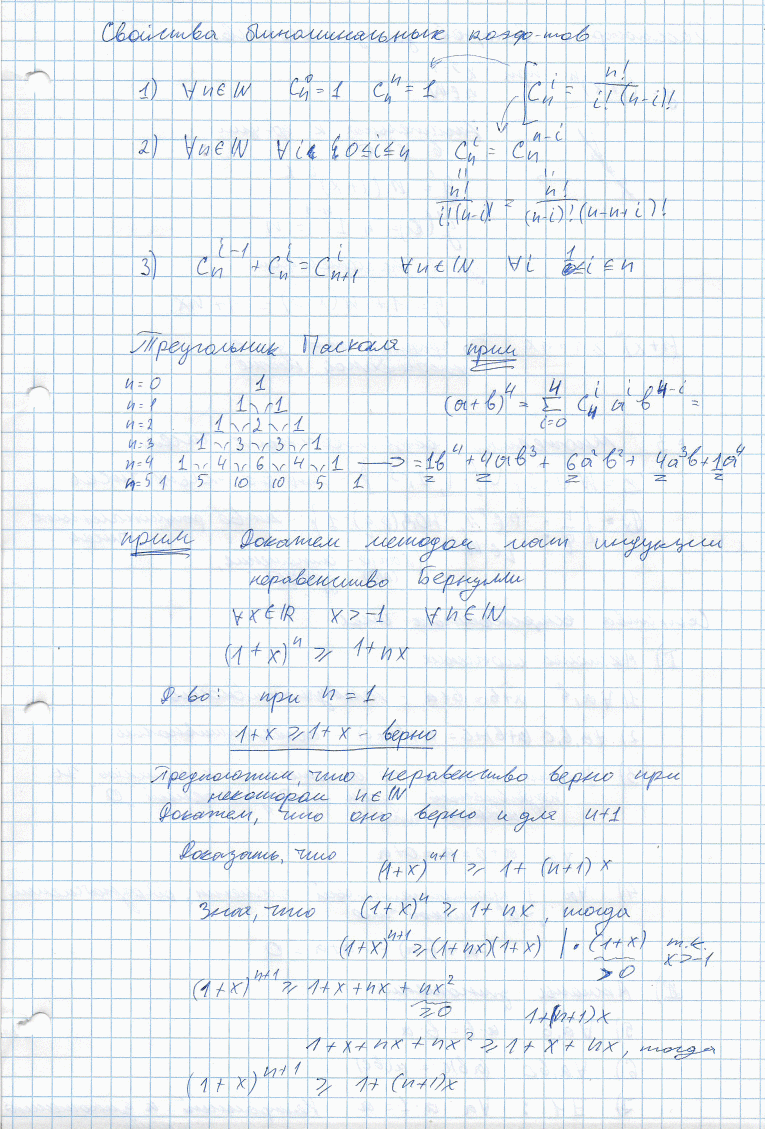 Свойства биномиальных коэф-тов
1) ∀n∈ℕ C_n^0 = 1 C_n^n = 1 [C_n^i = n!/(i!(n-i)!)
2) ∀n∈ℕ ∀i 0≤i≤n C_n^i = C_n^{n-i}
" "
n!/(i!(n-i)!) = n!/((n-i)!(n-n+i)!)
3) C_n^{i-1} + C_n^i = C_{n+1}^i ∀n∈ℕ ∀i 1≤i≤n
Треугольник Паскаля прим
n=0 1
n=1 1 1 (a+b)^4 = ∑_{i=0}^4 C_4^i a^i b^{4-i} =
n=2 1 2 1
n=3 1 3 3 1
n=4 1 4 6 4 1 → = 1b^4 + 4ab^3 + 6a^2b^2 + 4a^3b + 1a^4
n=5 1 5 10 10 5 1
прим Докажем методом мат индукции
неравенство Бернулли
∀x∈ℝ x>-1 ∀n∈ℕ
(1+x)^n ⩾ 1+nx
Д-во: при n=1
1+x ⩾ 1+x - верно
Предположим, что неравенство верно при
некотором n∈ℕ
Докажем, что оно верно и для n+1
Доказать, что (1+x)^{n+1} ⩾ 1+(n+1)x
Зная, что (1+x)^n ⩾ 1+nx, тогда
(1+x)^{n+1} ⩾ (1+nx)(1+x) | · (1+x) т.к. x>-1
>0
(1+x)^{n+1} ⩾ 1+x+nx+nx^2
⩾0
1+(n+1)x
1+x+nx+nx^2 ⩾ 1+x+nx, тогда
(1+x)^{n+1} ⩾ 1+(n+1)x